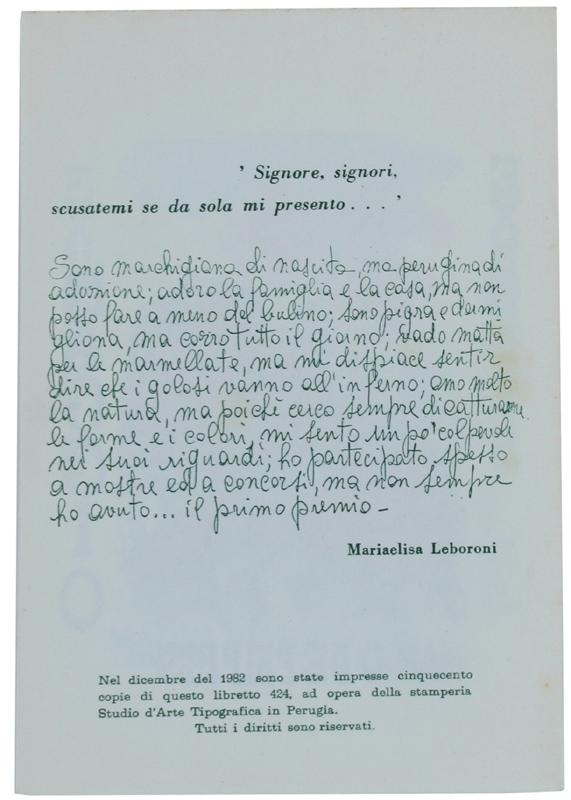 ' Signore, signori,
scusatemi se da sola mi presento . . . '
Sono marchigiana di nascita, ma perugina di
adozione; adoro la famiglia e la casa, ma non
posso fare a meno del bulino; sono pigra e dormi
gliona, ma corro tutto il giorno; vado matta
per le marmellate, ma mi dispiace sentir
dire che i golosi vanno all'inferno; amo molto
la natura, ma poichè cerco sempre di catturarne
le forme e i colori, mi sento un po' colpevole
nei suoi riguardi; ho partecipato spesso
a mostre ed a concorsi, ma non sempre
ho avuto... il primo premio -
Mariaelisa Leboroni
Nel dicembre del 1982 sono state impresse cinquecento
copie di questo libretto 424, ad opera della stamperia
Studio d'Arte Tipografica in Perugia.
Tutti i diritti sono riservati.